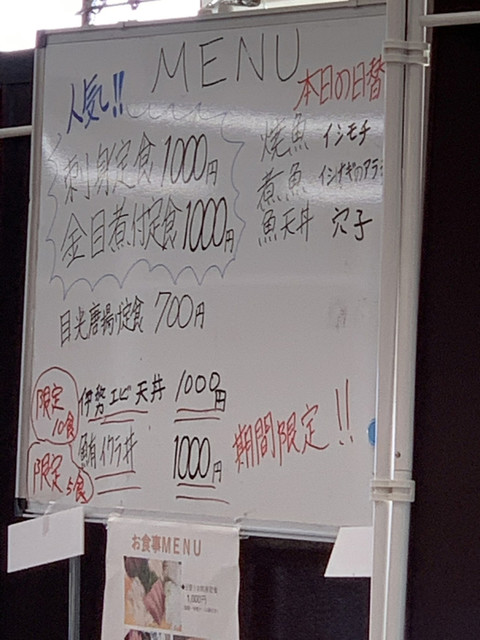 MENU
人気!!
刺身定食 1000円
金目煮付定食 1000円
目光唐揚げ定食 700円
限定10食
伊勢エビ天丼 1000円
限定5食
鮪イクラ丼 1000円
期間限定!!
本日の日替
焼魚 イシモチ
煮魚 イシナギのアラ
魚天丼 穴子
お食事MENU
1,000円